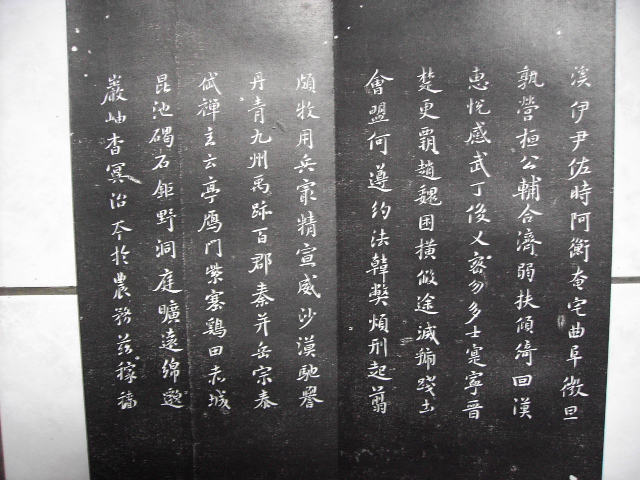 溪伊尹佐時阿衡奄宅曲阜微旦
孰營桓公輔合濟弱扶傾綺回漢
惠悅感武丁俊乂密勿多士寔寧晉
楚更覇趙魏困橫假途滅虢踐土
會盟何遵約法韓獘煩刑起翦
頗牧用兵最精宣威沙漠馳譽
丹青九州禹跡百郡秦并岳宗泰
岱禪主云亭鴈門紫塞鷄田赤城
昆池碣石鉅野洞庭曠遠綿邈
巖岫杳冥治本於農務茲稼穡